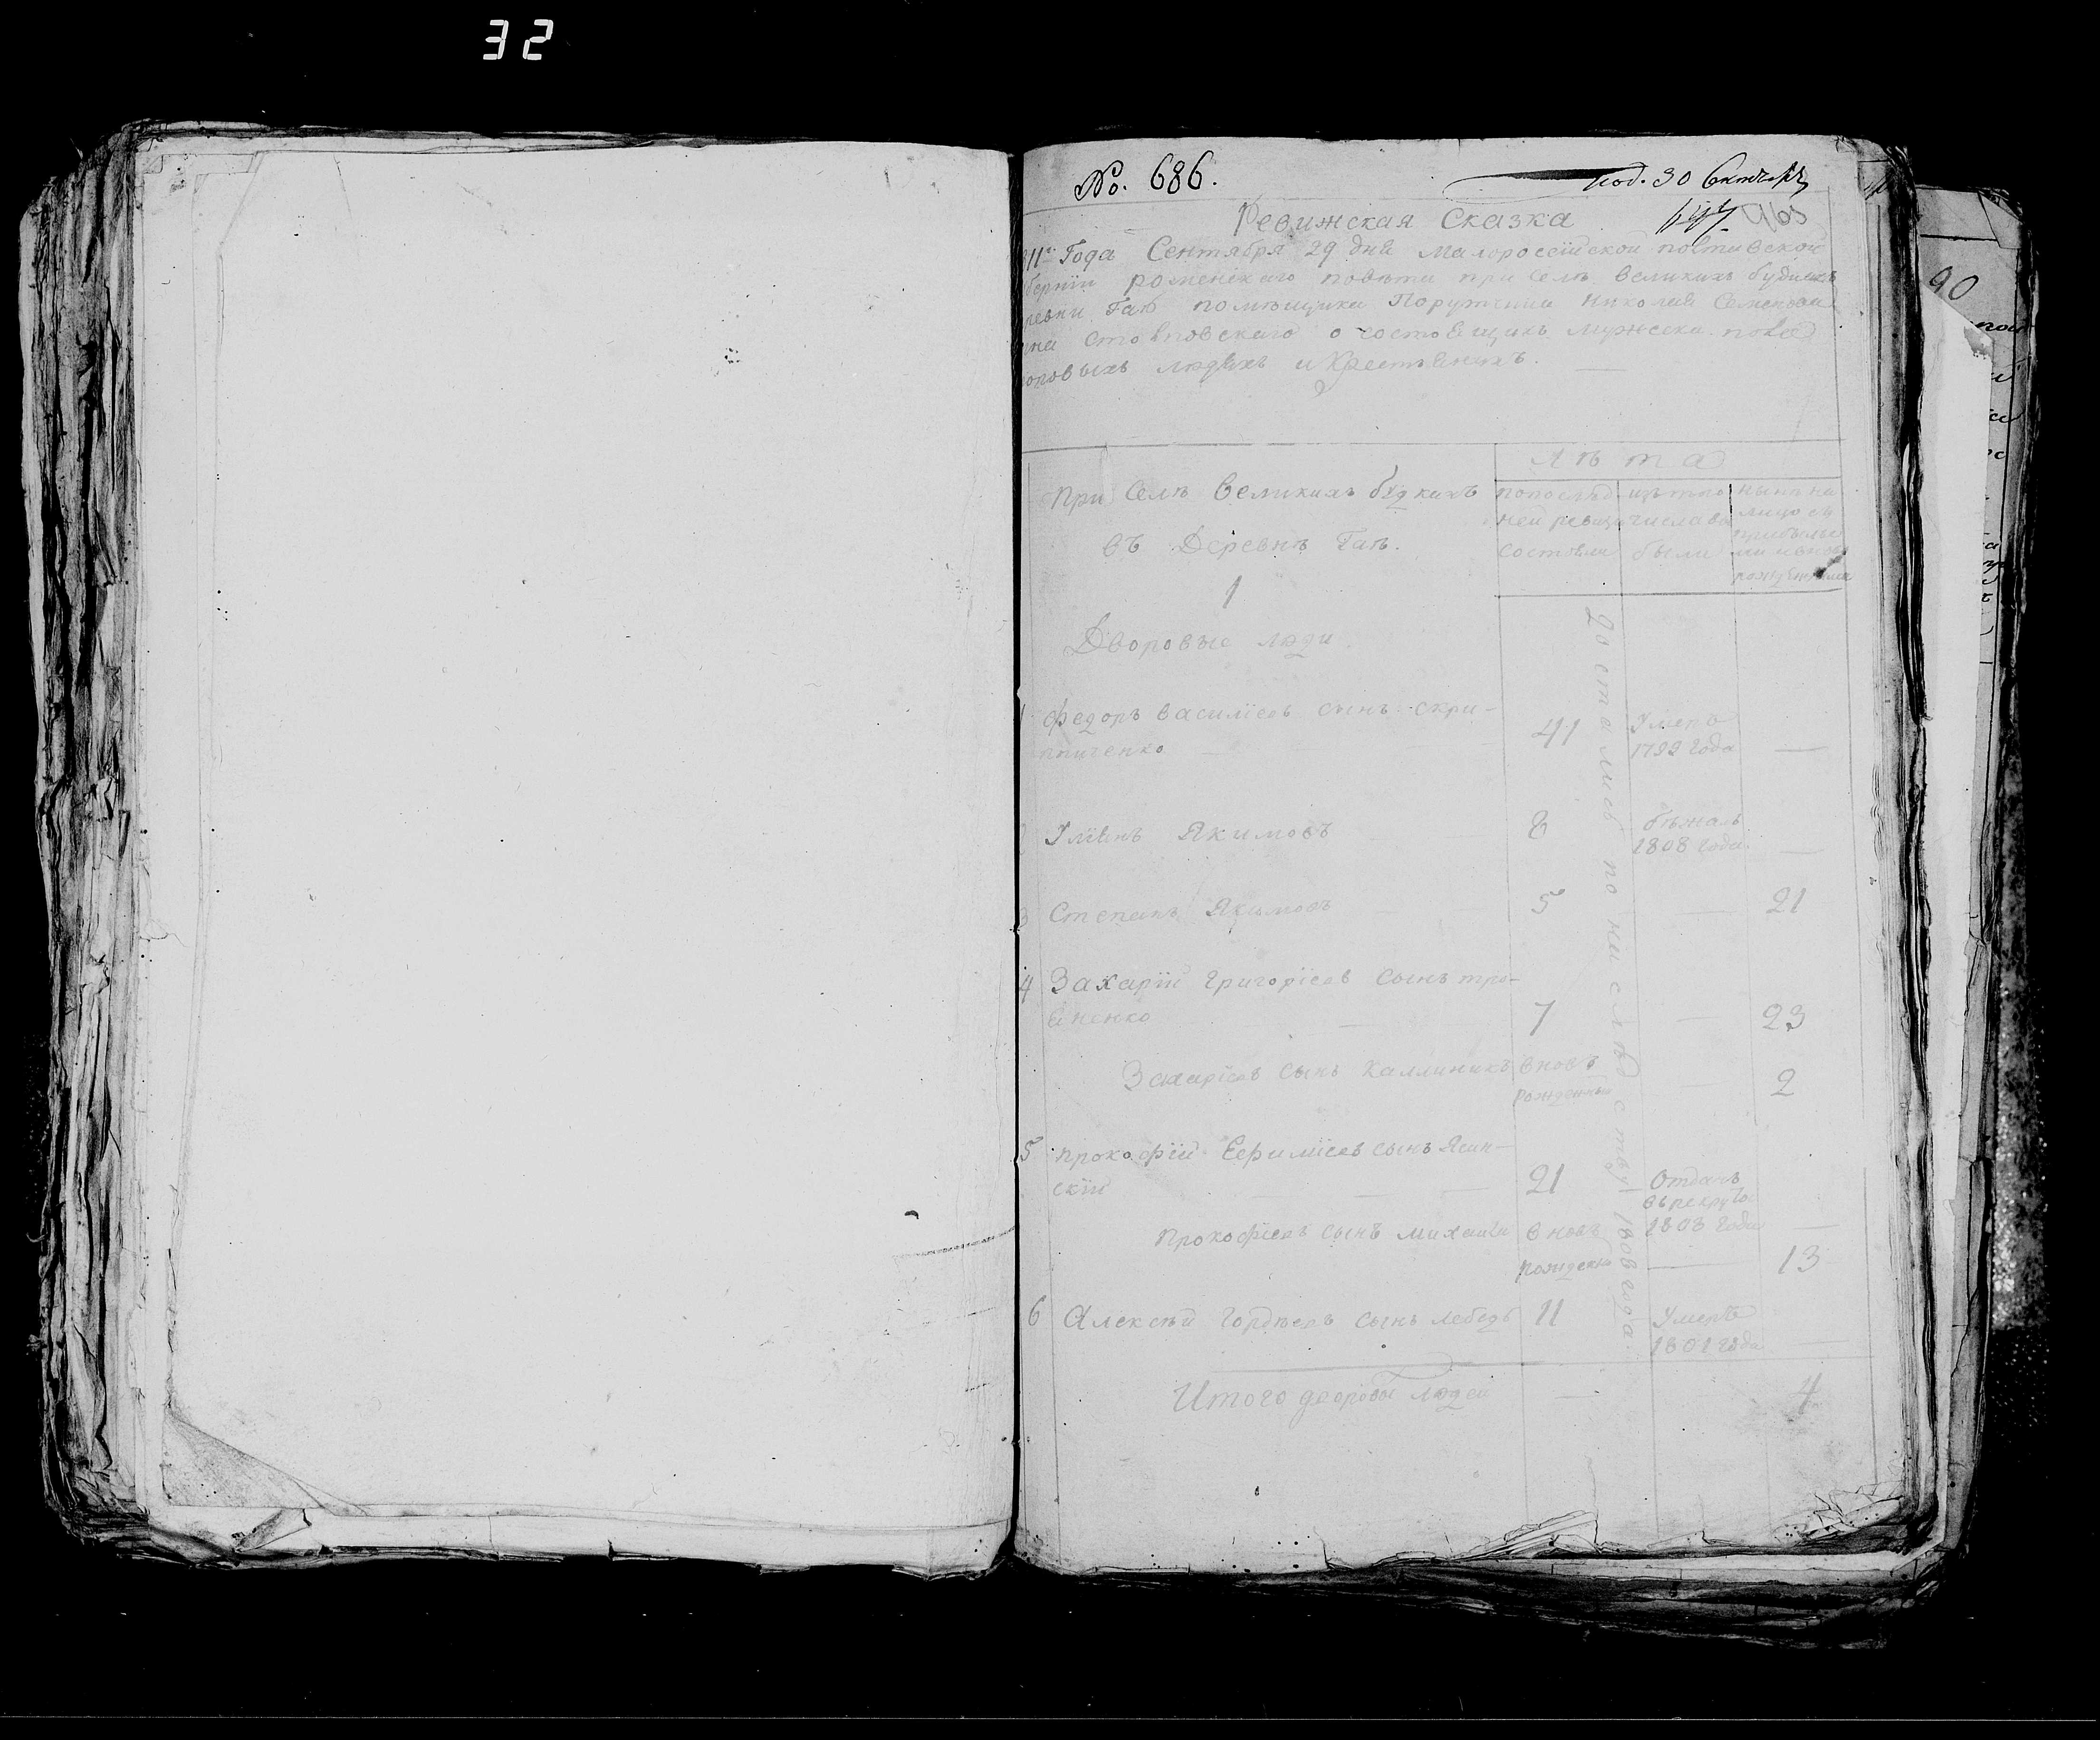 32
No. 686.
под. 30 Октября
Ревижская Сказка
965
811го Года Сентября 29 дня Малороссійской полтавской
берніи роменскаго повѣта при Селѣ Великихъ будкахъ
ревни Гаѣ помѣщика Порутчика Николая Семенова
на Столповскаго о состоящихъ мужеска пола
воровыхъ людяхъ и Крестьянахъ.
90
Лѣта
При Селѣ Великихъ будкахъ
въ Деревнѣ Гаѣ.
попослѣд
ней ревизіи
состояли
изъ того
числа вы
были
нынѣ на
лицо съ
1
Дворовые люди
1 Федоръ василіевъ сынъ скри-
пниченко — 41 Умеръ
1799 года —
Уліянъ Якимовъ 8 бѣжалъ
1808 года. —
3 Степанъ Якимовъ 5 — 21
4 Захарій Григоріевъ сынъ тро-
яненко — 7 — 23
Захаріевъ сынъ Каллиникъ вновь
рожденный — 2
5 прокофій Ефиміевъ сынъ Ясин-
скій — 21 Отданъ
въ рекруты
1808 года —
Прокофіевъ сынъ михаила вновь
рожденъ — 13
6 Алексѣй Гордѣевъ сынъ лебедь 11 Умеръ
1801 года —
достались по наслѣдству 1808 года
Итого дворовы людей — 4